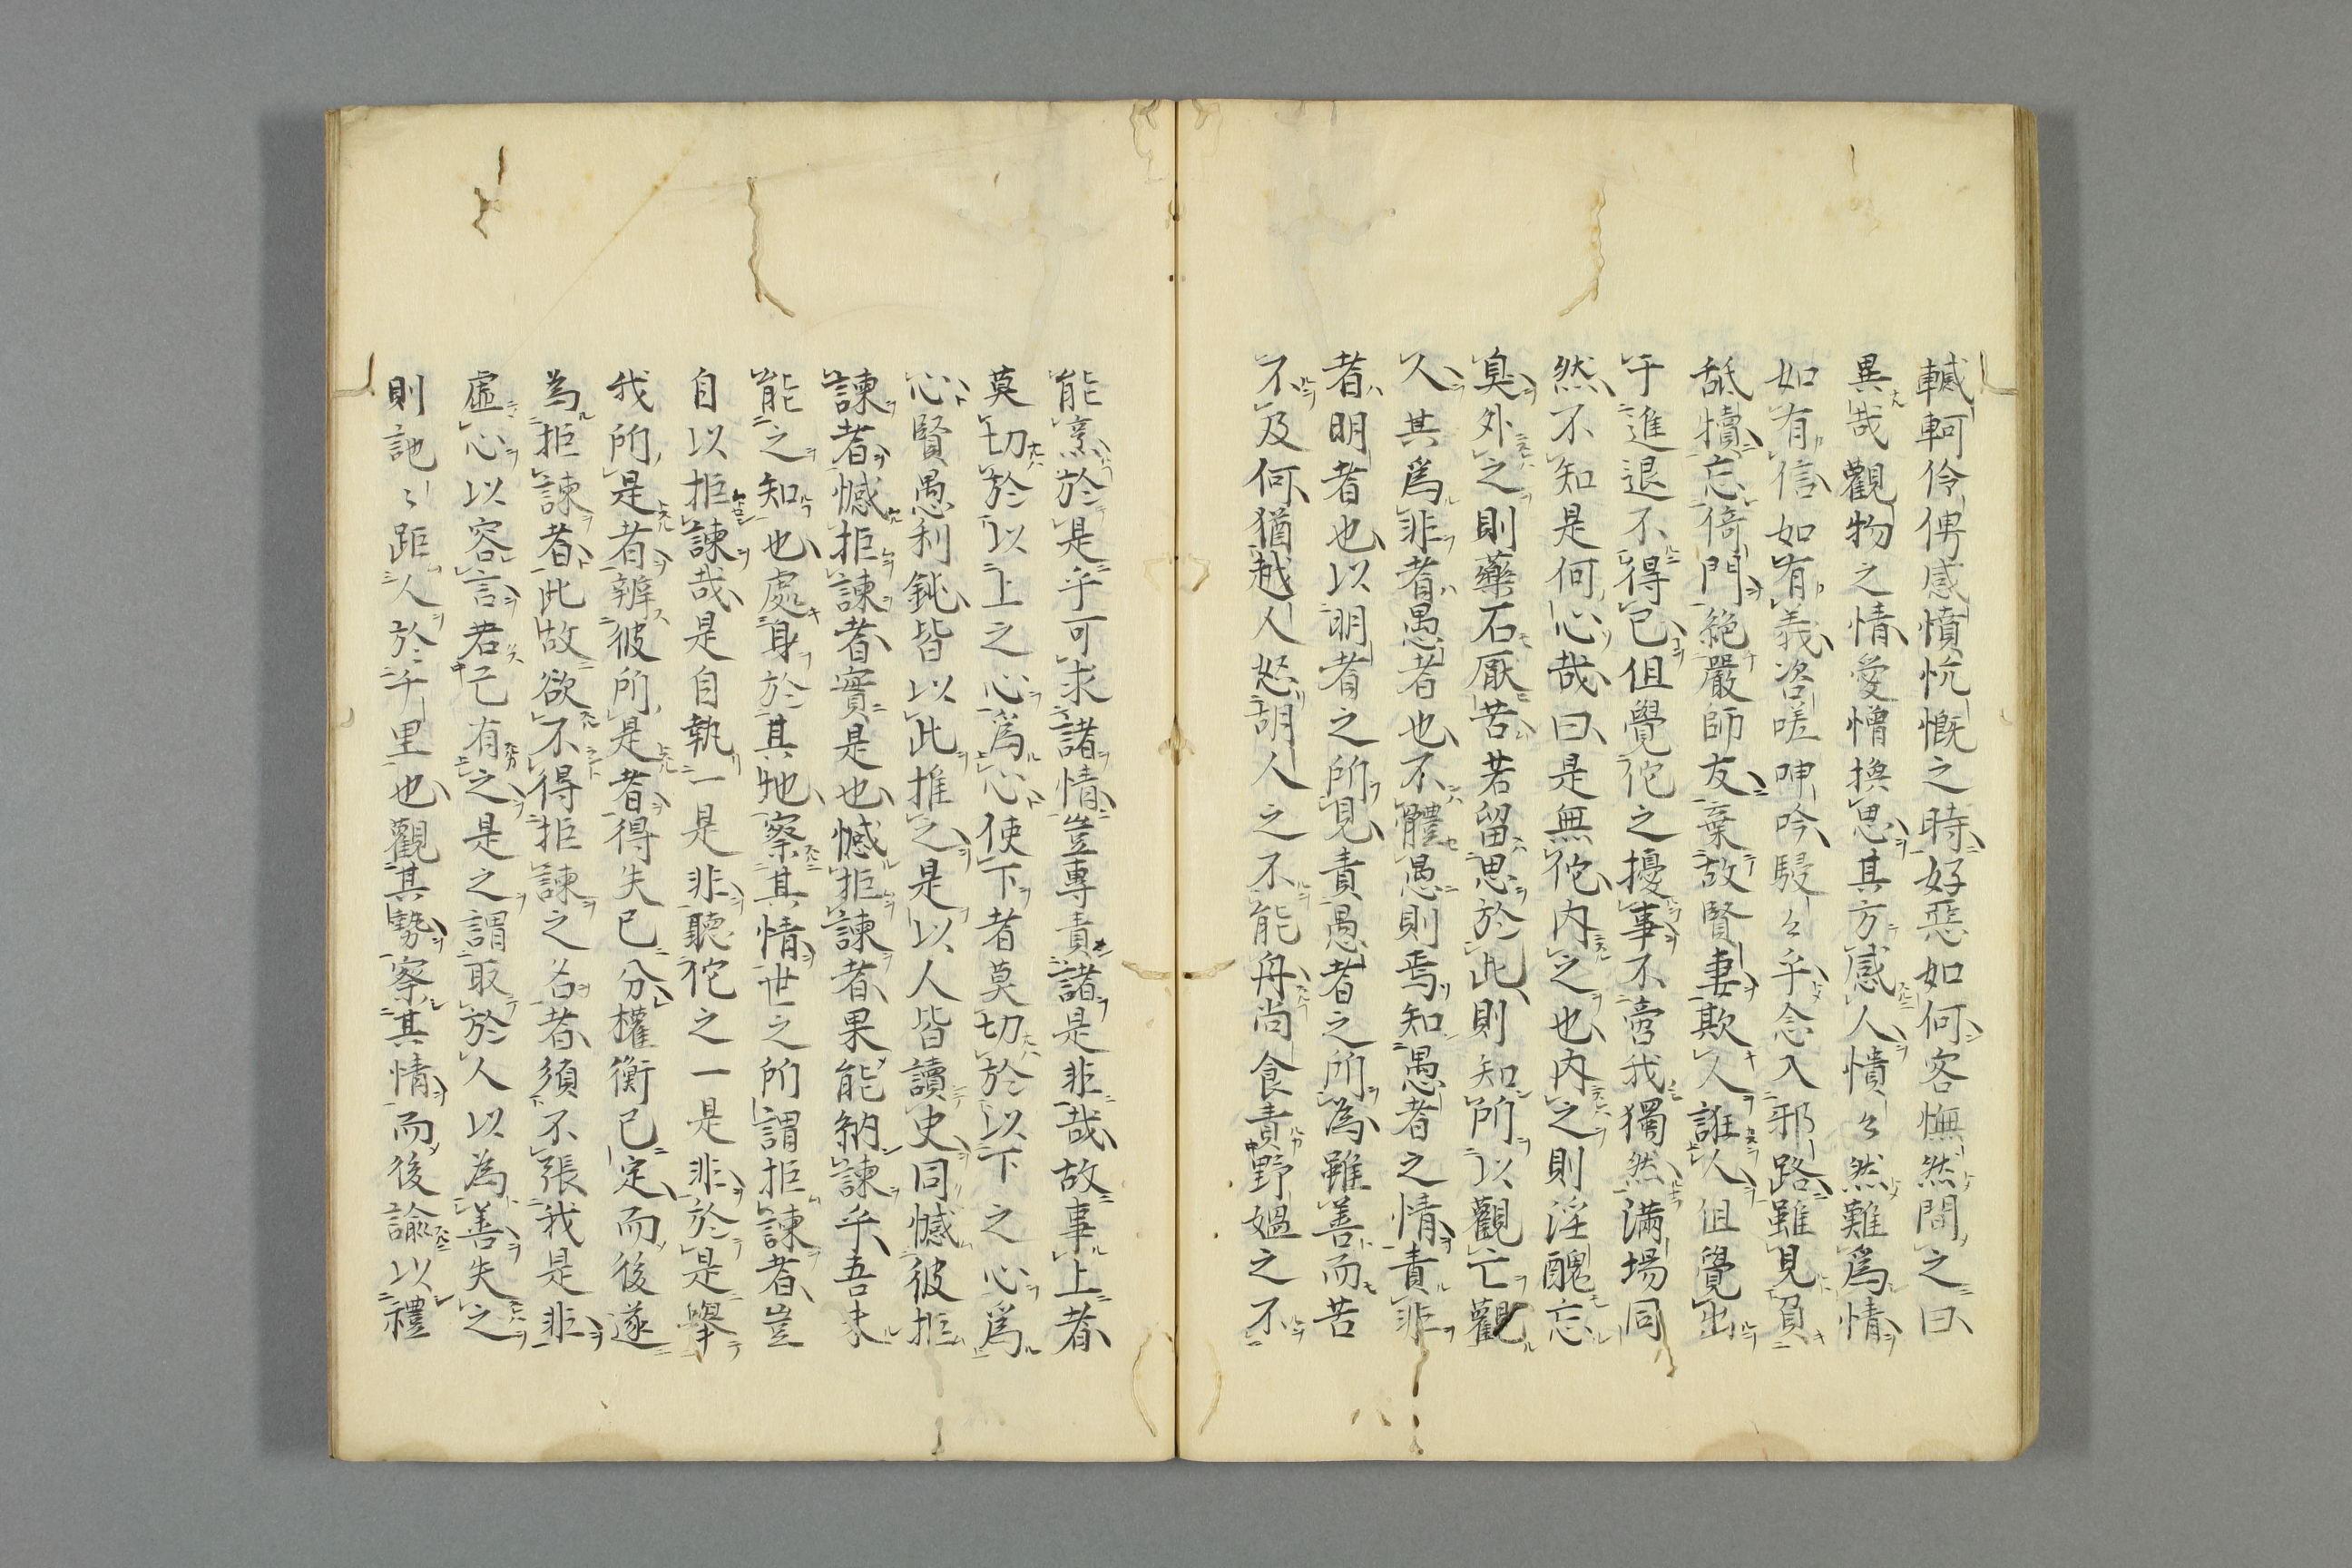 轗軻伶俜感憤忼慨之時好惡如何客憮然間之曰
異哉觀物之情愛憎換思其方感人憤々然難爲情
如有信如有義咨嗟呻吟駸々乎念入邪路雖見負
舐犢忘倚門絕嚴師友棄故賢妻欺人誑人但覺出
于進退不得已但覺佗之擾事不啻我獨然滿場同
然不知是何心哉曰是無佗内之也内之則淫醜忘
臭外之則藥石厭苦若留思於此則知所以觀亡觀
人其爲非者愚者也不體愚則焉知愚者之情責非
者明者也以明者之所見責愚者之所為雖善而苦
不及何猶越人怒胡人之不能舟尚食責野媼之不
能烹於是乎可求諸情豈專責諸是非哉故事上者
莫切於以上之心爲心使下者莫切於以下之心爲
心賢愚利鈍皆以此推之是以人皆讀史同憾彼拒
諫者憾拒諫者實是也憾拒諫者果能納諫乎吾未
能之知也處身於其地察其情世之所謂拒諫者豈
自以拒諫哉是自執一是非聽佗之一是非於是舉
我所是者辨彼所是者得失已分權衡已定而後遂
為拒諫者此故欲不得拒諫之名者須不張我是非
虛心以容言若己有之是之謂取於人以為善失之
則訑々距人於千里也觀其勢察其情而後諭以禮